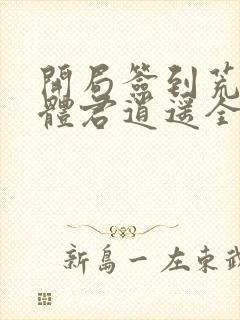 開局簽到荒
體君逍遙全
新島一 左東武